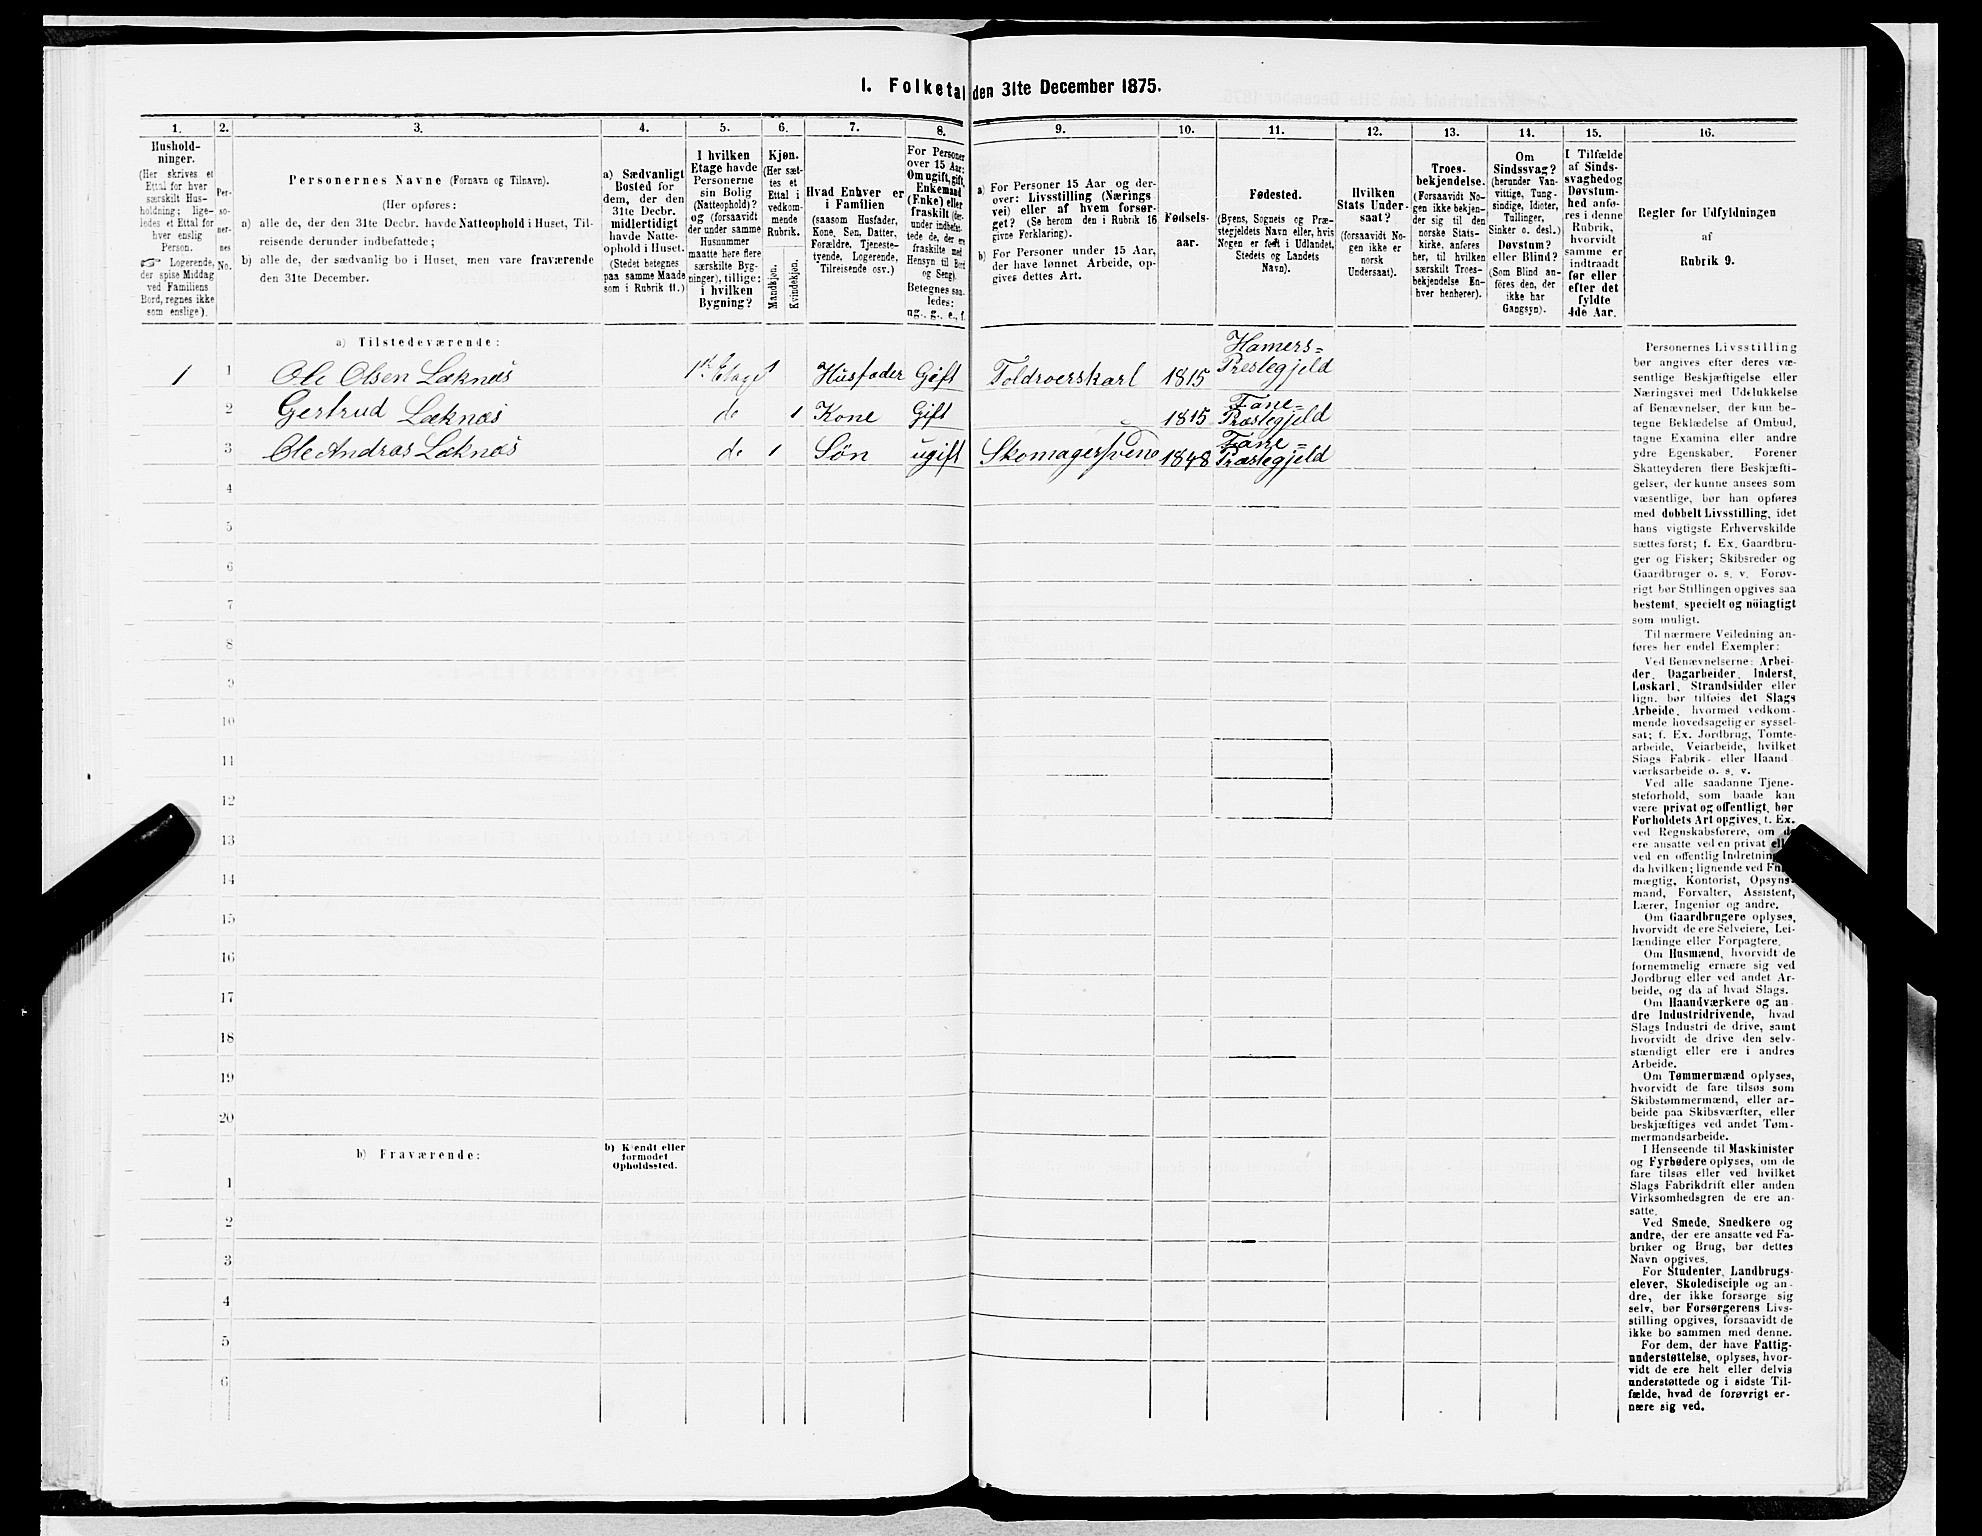 1. Folketal den 31te December 1875.
1. 2. 3. 4. 5. 6. 7. 8. 9. 10. 11. 12. 13. 14. 15. 16.
Hushold-
ninger.
(Her skrives et
Ettal for hver
særskilt Hus-
holdning; lige-
ledes et Ettal for
hver enslig
Person.
Logerende,
der spise Middag
ved Familiens
Bord, regnes ikke
som enslige).
Per-
so-
ner-
nes
No.
Personernes Navne (Fornavn og Tilnavn).
(Her opføres:
a) alle de, der den 31te Decbr. havde Natteophold i Huset, Til-
reisende derunder indbefattede;
b) alle de, der sædvanlig bo i Huset, men vare fraværende
den 31te December.
a) Sædvanligt
Bosted for
dem, der den
31te Decbr.
midlertidigt
havde Natte-
ophold i Huset.
(Stedet betegnes
paa samme Maade
som i Rubrik 11.)
I hvilken
Etage havde
Personerne
sin Bolig
(Natteophold)?
og (forsaavidt
der under samme
Husnummer
maatte høre flere
særskilte Byg-
ninger), tillige:
i hvilken
Bygning?
Kjøn.
(Her sæt-
tes et
Ettal i
vedkom-
mende
Rubrik.
Mandkjøn.
Kvindekjøn.
Hvad Enhver er
i Familien
(saasom Husfader,
Kone, Søn, Datter,
Forældre, Tjeneste-
tyende, Logerende,
Tilreisende osv.)
For Personer
over 15 Aar:
Om ugift, gift,
Enkemand
(Enke) eller
fraskilt (der-
under indbefat-
tede de, der ere
fraskilte med
Hensyn til Bord
og Seng).
Betegnes saa-
ledes:
ug., g., e., f.
a) For Personer 15 Aar og der-
over: Livsstilling (Nærings
vei) eller af hvem forsør-
get? (Se herom den i Rubrik 16
givne Forklaring).
b) For Personer under 15 Aar,
der have lønnet Arbeide, op-
gives dettes Art.
Fødsels-
aar.
Fødested.
(Byens, Sognets og Præ-
stegjeldets Navn eller, hvis
Nogen er født i Udlandet,
Stedets og Landets
Navn).
Hvilken
Stats Under-
saat?
(forsaavidt No-
gen ikke er
norsk
Undersaat).
Troes-
bekjendelse.
(Forsaavidt No-
gen ikke bekjen-
der sig til den
norske Stats-
kirke, anføres
her, til hvilken
særskilt Troes-
bekjendelse En-
hver henhører).
Om
Sindssvag?
(herunder Van-
vittige, Tung-
sindige, Idioter,
Tullinger,
Sinker o. desl.)
Døvstum?
eller Blind?
(Som Blind an-
føres den, der
ikke har
Gangsyn).
I Tilfælde
af Sinds-
svaghed og
Døvstum-
hed anfø-
res i denne
Rubrik,
hvorvidt
samme er
indtraadt
før eller
efter det
fyldte
4de Aar.
Regler for Udfyldningen
af
Rubrik 9.
a) Tilstedeværende:
1 1 Ole Olsen Læknæs 1st Etage 1 Husfader Gift Toldroerskarl 1815 Hamers=
Prestegjeld
2 Gertrud Læknæs do 1 Kone Gift 1815 Fane=
Præstegjeld
3 Ole Andras Læknæs do 1 Søn ugift Skomagersvend 1848 Fane=
Præstegjeld
4
5
6
7
8
9
10
11
12
13
14
15
16
17
18
19
20
b) Fraværende:
b) Kjendt eller
formodet
Opholdssted.
1
2
3
4
5
6
Personernes Livsstilling
bør angives efter deres væ-
sentlige Beskjæftigelse eller
Næringsvei med Udelukkelse
af Benævnelser, der kun be-
tegne Beklædelse af Ombud,
tagne Examina eller andre
ydre Egenskaber. Forener
Skatteyderen flere Beskjæfti-
gelser, der kunne ansees som
væsentlige, bør han opføres
med dobbelt Livsstilling, idet
hans vigtigste Erhvervskilde
sættes først; f. Ex. Gaardbru-
ger og Fisker; Skibsreder og
Gaardbruger o. s. v. Forøv-
rigt bør Stillingen opgives saa
bestemt, specielt og nöiagtigt
som muligt.
Til nærmere Veiledning an-
føres her endel Exempler:
Ved Benævnelserne: Arbei-
der, Dagarbeider, Inderst,
Løskarl, Strandsidder eller
lign. bør tilføies det Slags
Arbeide, hvormed vedkom-
mende hovedsagelig er syssel-
sat; f. Ex. Jordbrug, Tomte-
arbeide, Veiarbeide, hvilket
Slags Fabrik- eller Haand
værksarbeide o. s. v.
Ved alle saadanne Tjene-
steforhold, som baade kan
være privat og offentligt, bør
Forholdets Art opgives, f. Ex.
ved Regnskabsførere, om de
ere ansatte ved en privat eller
ved en offentlig Indretning
da hvilken; lignende ved Fuld-
mægtig, Kontorist, Opsyns-
mand, Forvalter, Assistent,
Lærer, Ingeniør og andre.
Om Gaardbrugere oplyses,
hvorvidt de ere Selveiere, Lei-
lændinge eller Forpagtere.
Om Husmænd, hvorvidt de
fornemmelig ernære sig ved
Jordbrug eller ved andet Ar-
beide, og da af hvad Slags.
Om Haandværkere og an-
dre Industridrivende, hvad
Slags Industri de drive, samt
hvorvidt de drive den selv-
stændigt eller ere i andres
Arbeide.
Om Tømmermænd oplyses,
hvorvidt de fare tilsøs som
Skibstømmermænd, eller ar-
beide paa Skibsværfter, eller
beskjæftiges ved andet Tøm-
mermandsarbeide.
I Henseende til Maskinister
og Fyrbødere oplyses, om de
fare tilsøs eller ved hvilket
Slags Fabrikdrift eller anden
Virksomhedsgren de ere an-
satte.
Ved Smede, Snedkere og
andre, der ere ansatte ved Fa-
briker og Brug, bør dettes
Navn opgives.
For Studenter, Landbrugs-
elever, Skoledisciple og an-
dre, der ikke forsørge sig
selv, bør Forsørgerens Livs-
stilling opgives, forsaavidt de
ikke bo sammen med denne.
For dem, der have Fattig-
understøttelse, oplyses, hvor-
vidt de ere helt eller delvis
understøttede og i sidste Til-
fælde, hvad de forøvrigt er-
nære sig ved.